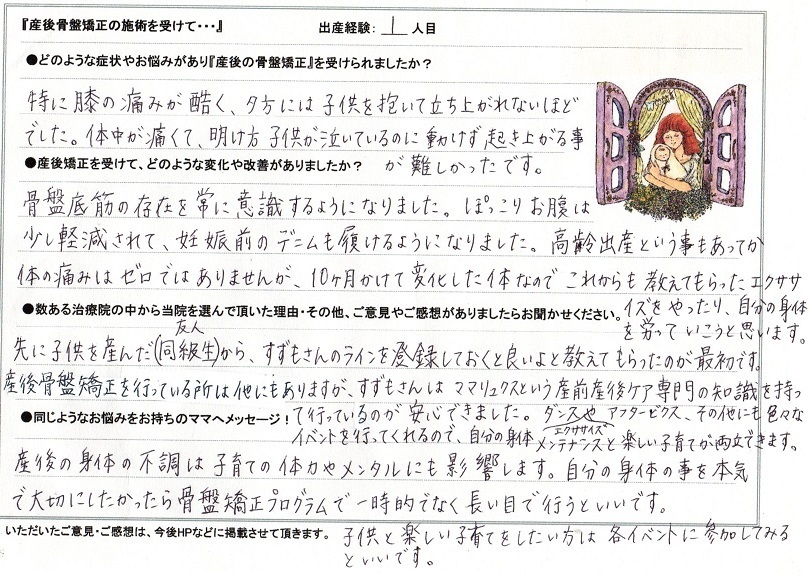 『産後骨盤矯正の施術を受けて・・・』 出産経験： 1 人目
●どのような症状やお悩みがあり『産後の骨盤矯正』を受けられましたか？
特に膝の痛みが酷く、夕方には子供を抱いて立ち上がれないほど
でした。体中が痛くて、明け方子供が泣いているのに動けず、起き上がる事
が難しかったです。
●産後矯正を受けて、どのような変化や改善がありましたか？
骨盤底筋の存在を常に意識するようになりました。ぽっこりお腹は
少し軽減されて、妊娠前のデニムも履けるようになりました。高齢出産という事もあってか
体の痛みはゼロではありませんが、10ヶ月かけて変化した体なのでこれからも教えてもらったエクササ
イズをやったり、自分の身体
を労っていこうと思います。
●数ある治療院の中から当院を選んで頂いた理由・その他、ご意見やご感想がありましたらお聞かせください。
先に子供を産んだ友人(同級生)から、すずもさんのラインを登録しておくと良いよと教えてもらったのが最初です。
産後骨盤矯正を行っている所は他にもありますが、すずもさんはママリュクスという産前産後ケア専門の知識を持っ
て行っているのが安心できました。ダンスやアフタービクス、その他にも色々な
イベントを行ってくれるので、自分の身体メンテナンスエクササイズと楽しい子育てが両立できます。
●同じようなお悩みをお持ちのママへメッセージ！
産後の身体の不調は子育ての体力やメンタルにも影響します。自分の身体の事を本気
で大切にしたかったら骨盤矯正プログラムで一時的でなく長い目で行うといいです。
子供と楽しい子育てをしたい方は各イベントに参加してみる
といいです。
いただいたご意見・ご感想は、今後HPなどに掲載させて頂きます。